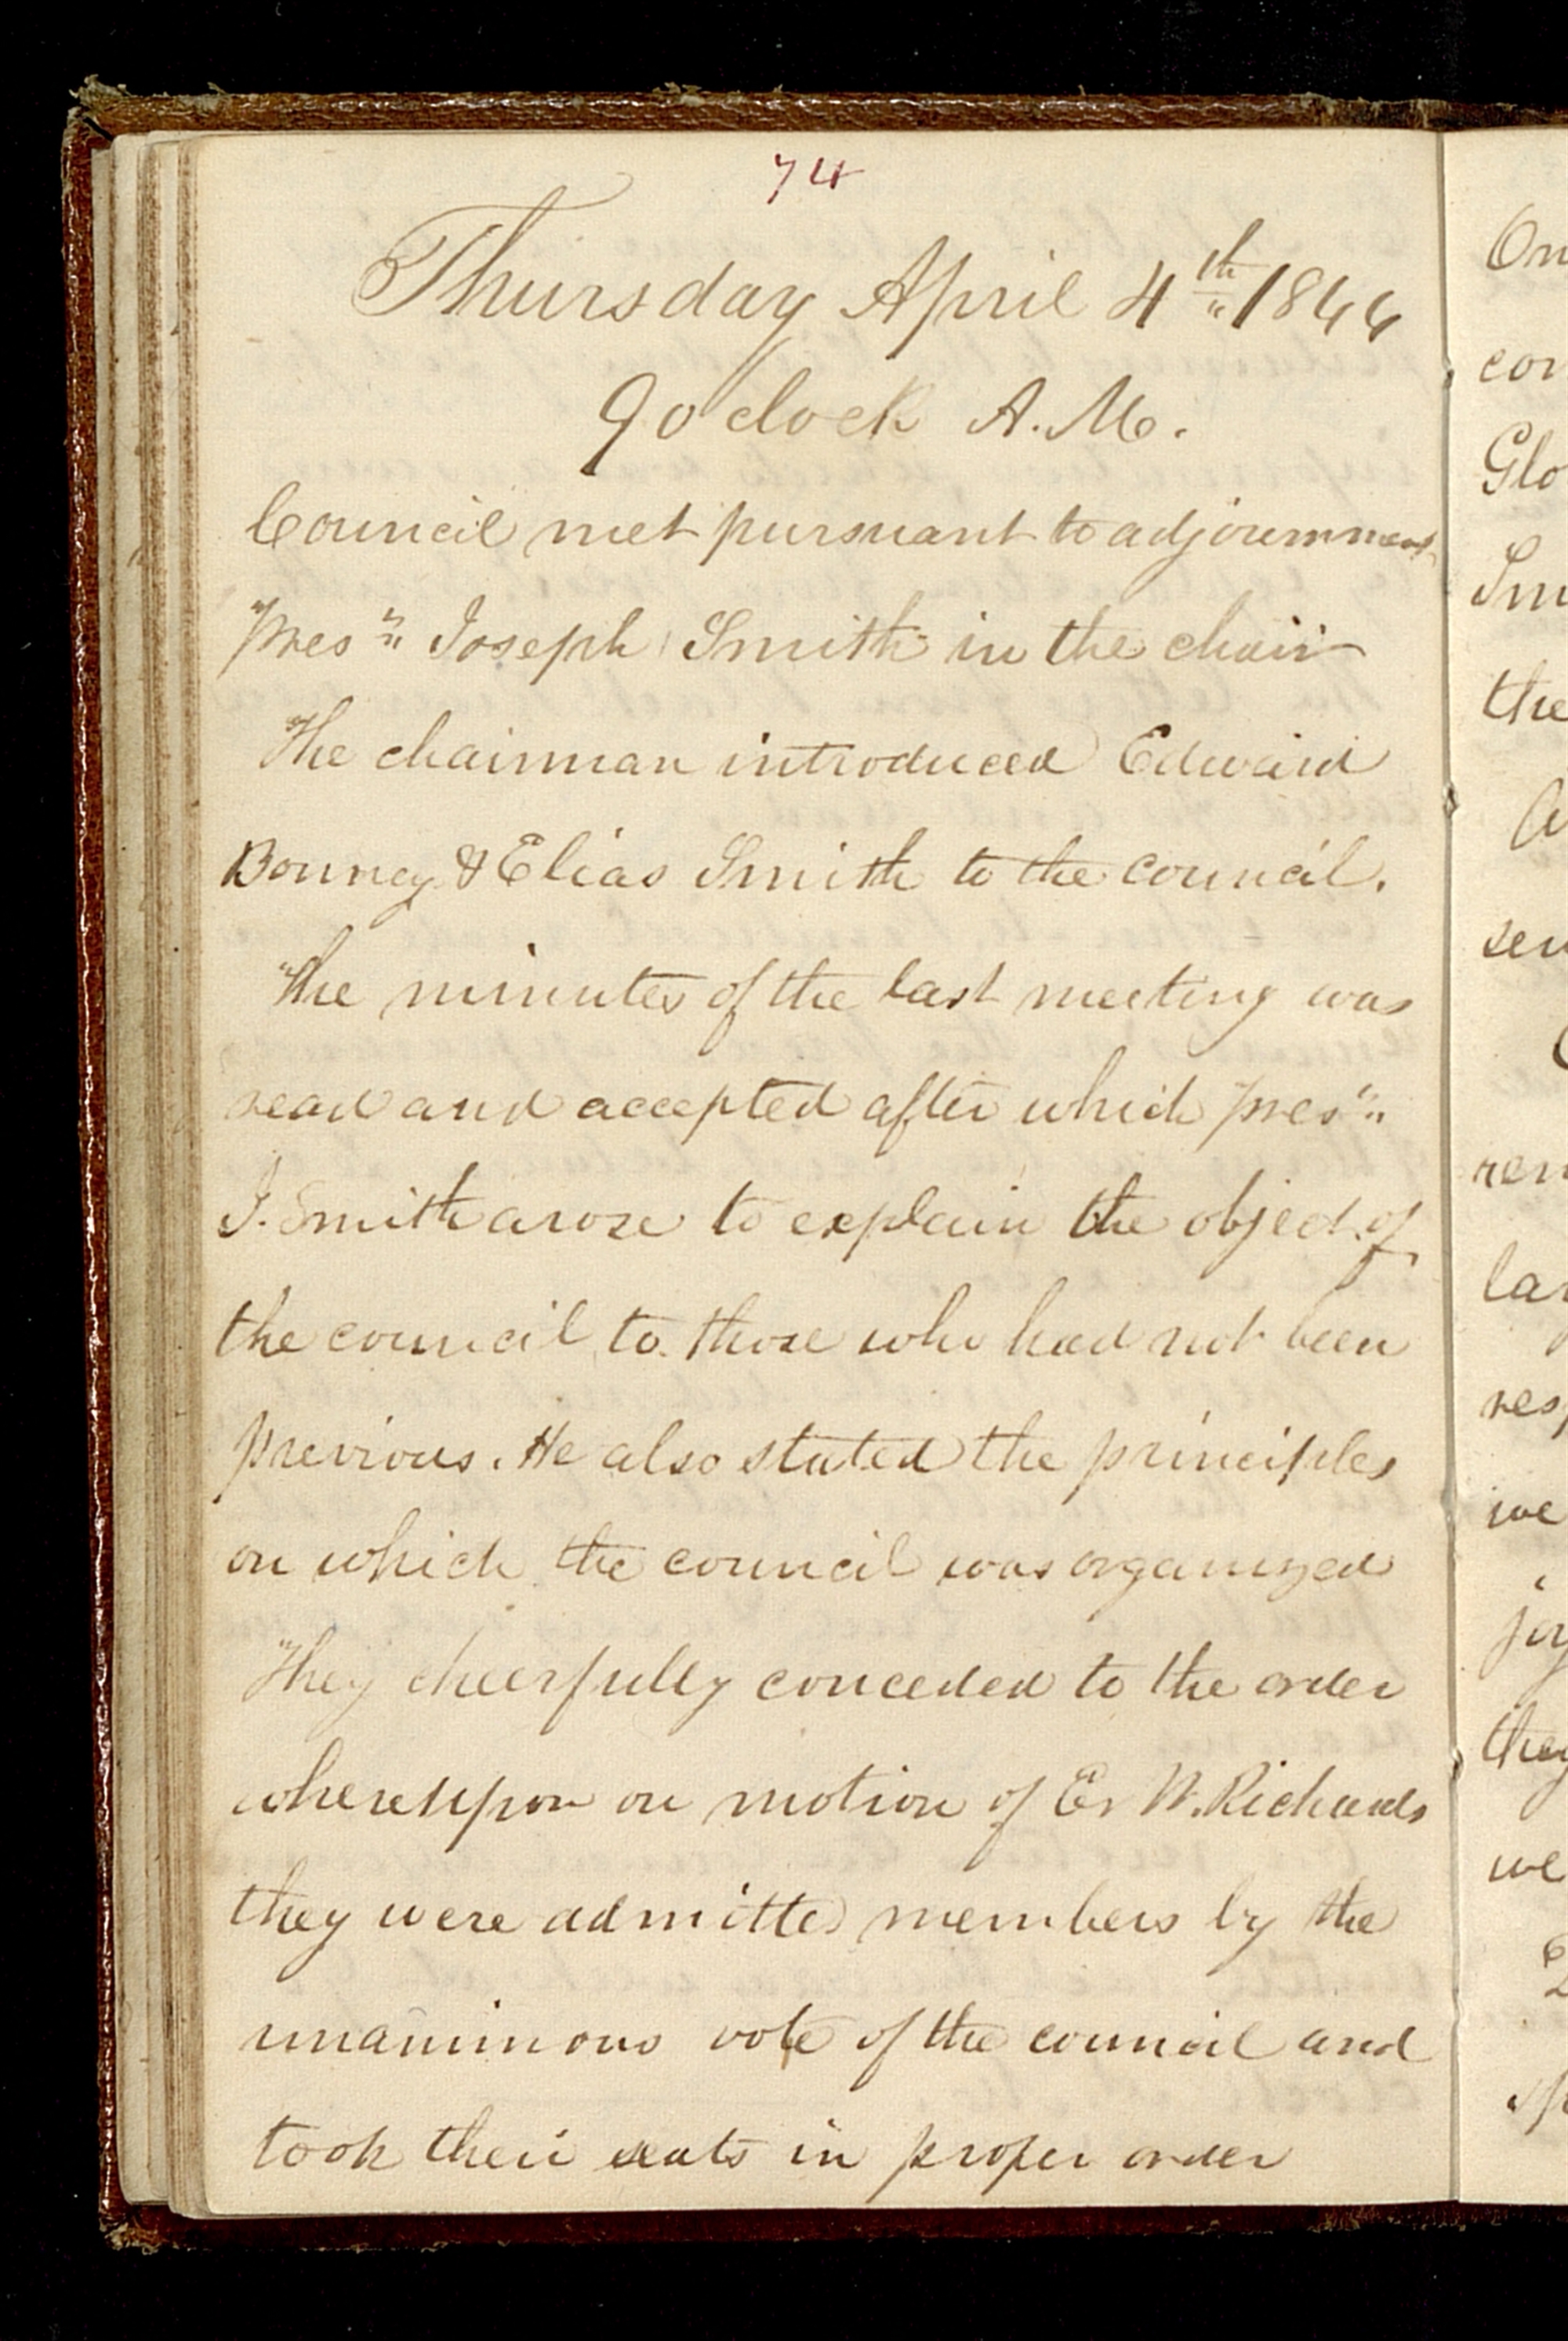 74
Thursday April 4th 1844
9 o'clock A.M.
Council met pursuant to adjournment
Pres't Joseph Smith in the chair
The chairman introduced Edward
Bonney & Elias Smith to the council.
The minutes of the last meeting was
read and accepted after which pres't
J. Smith arose to explain the object of
the council to those who had not been
previous. He also stated the principles
on which the council was organized
They cheerfully conceded to the order
whereupon on motion of Er W. Richards
they were admitted members by the
unanimous vote of the council and
took their seats in proper order
On
con
Glo
Sm
the
sen
ren
lar
resp
we
joy
they
we
sp